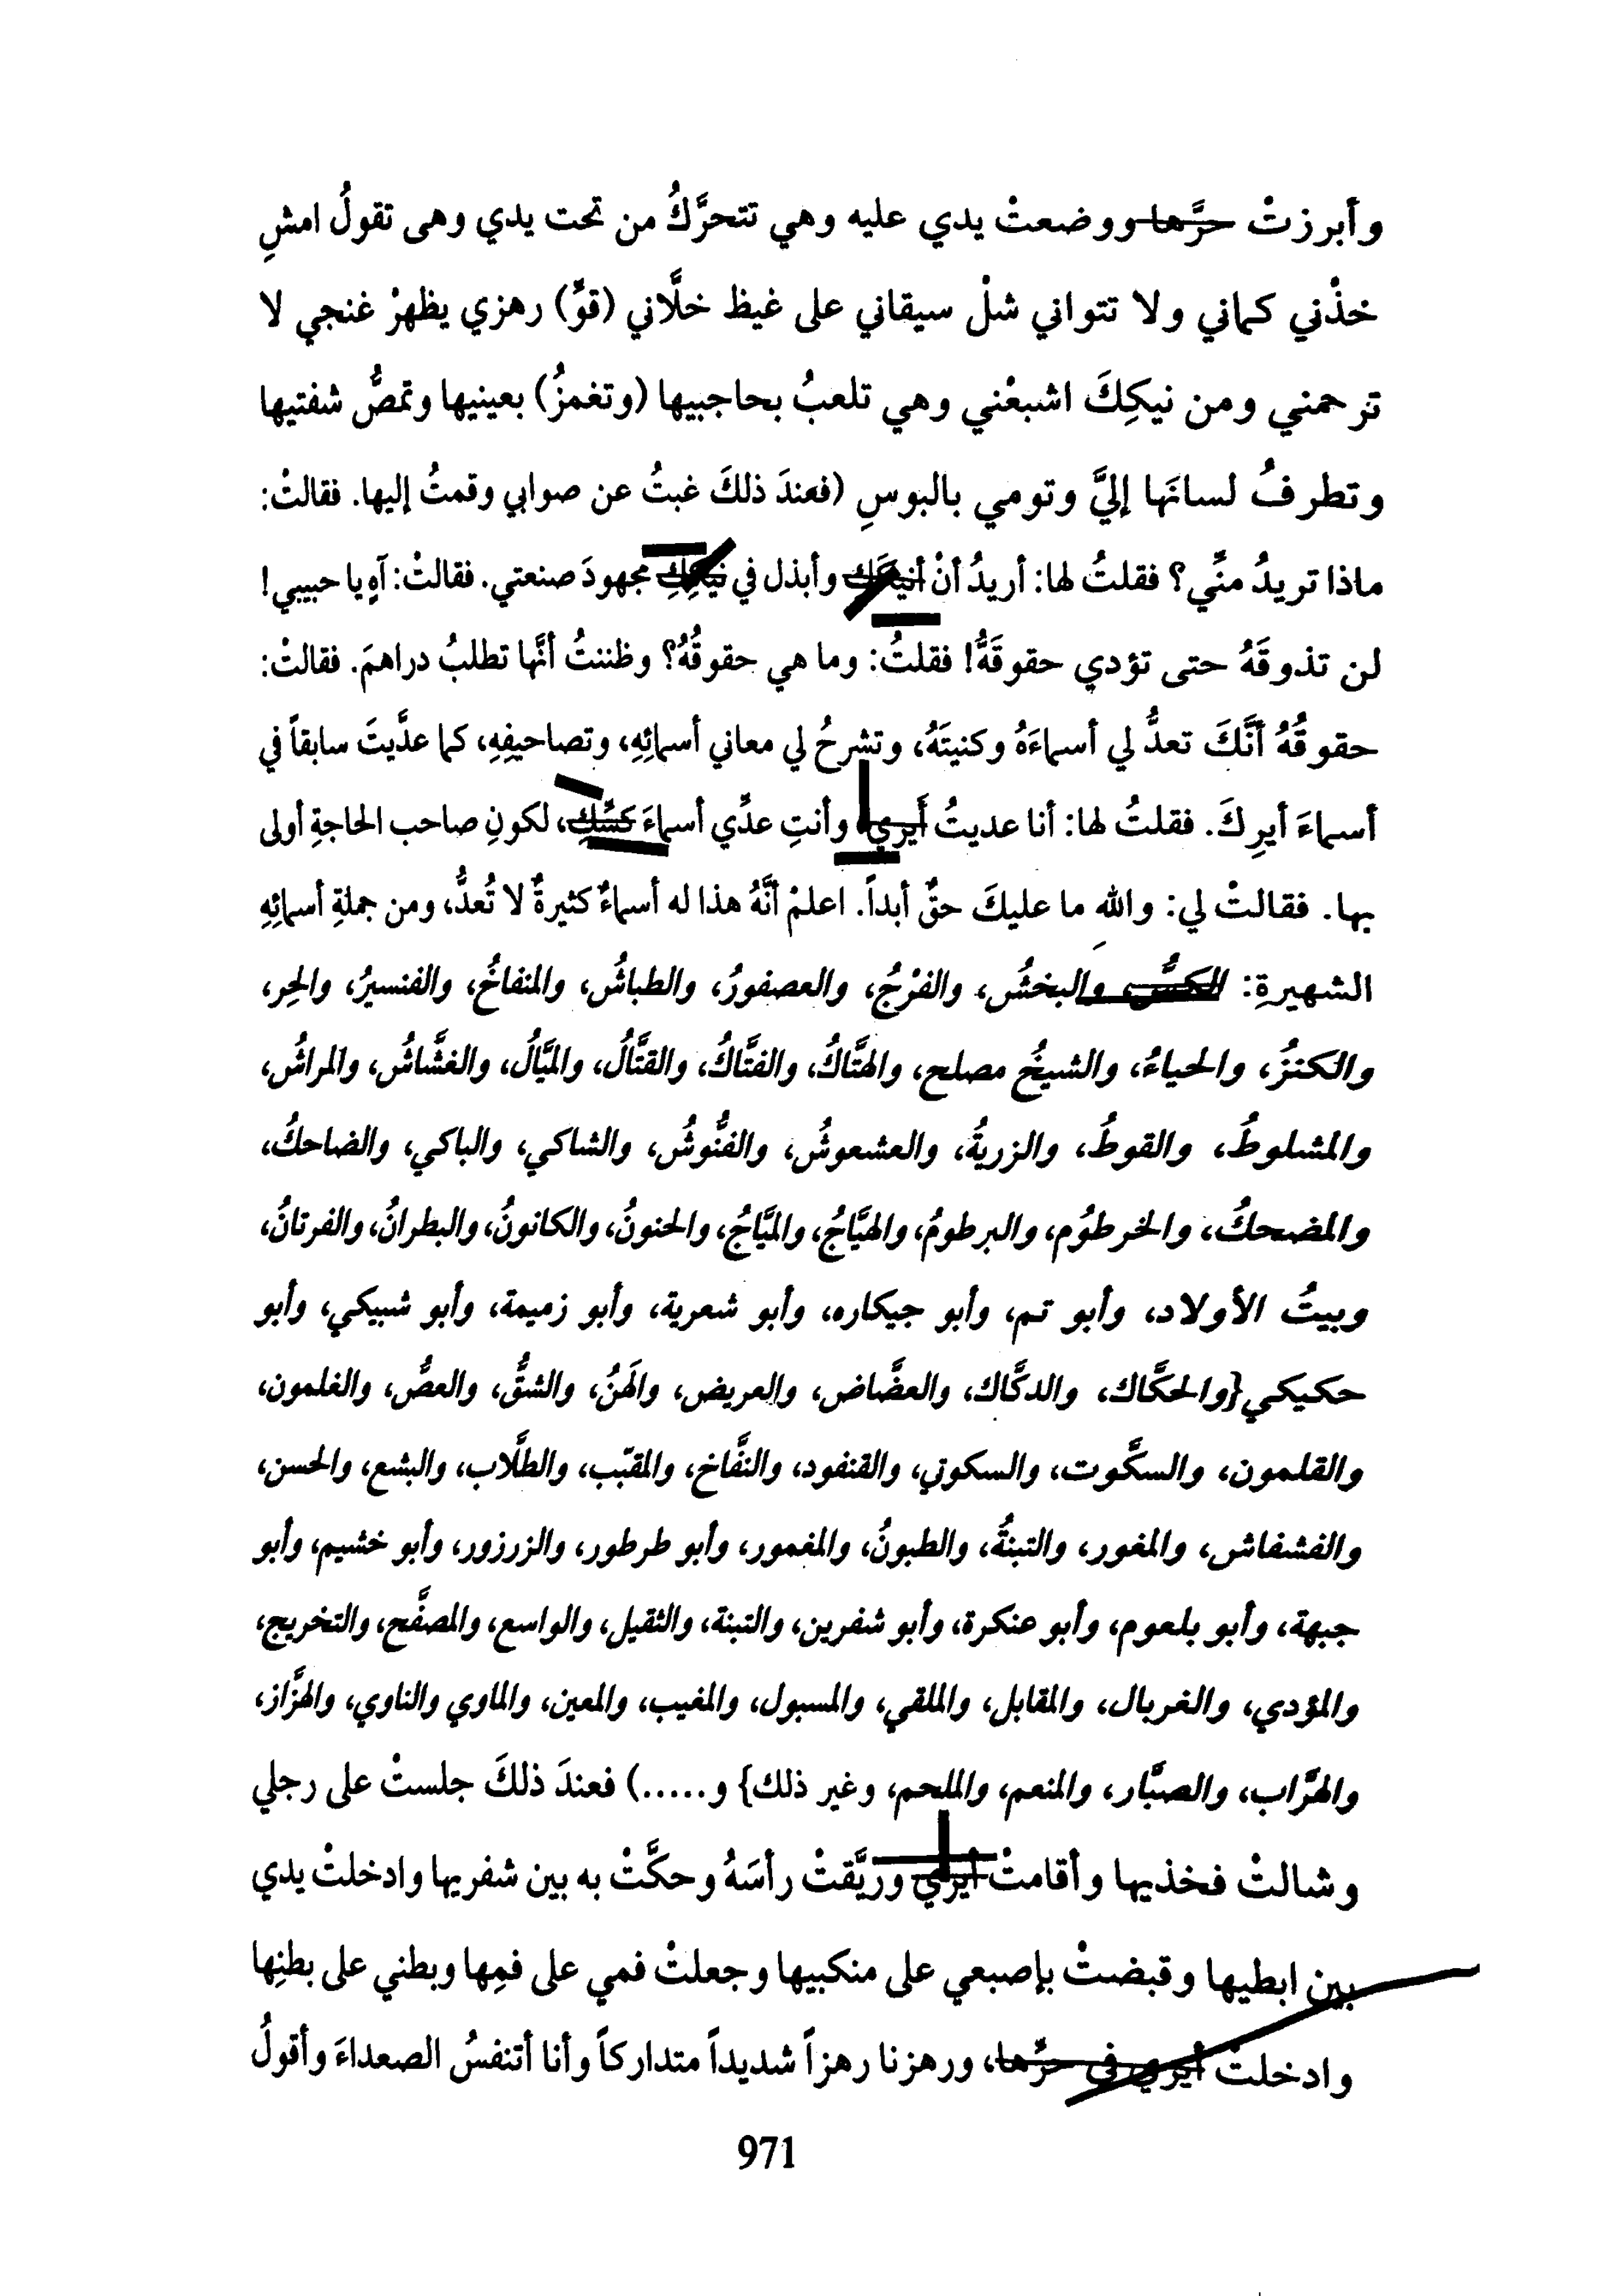 وأبرزتْ حرَّها ووضعتْ يدي عليه وهي تتحرَّكُ من تحت يدي وهى تقولُ امشِ
خذْني كماني ولا تتواني شلْ سيقاني على غيظ خلَّاني (قوِّ) رهزي يظهرْ غنجي لا
ترحمني ومن نيكِكَ اشبعْني وهي تلعبُ بحاجبيها (وتغمزُ) بعينيها وتمصُّ شفتيها
وتطرفُ لسانَها إليَّ وتومي بالبوسِ (فعندَ ذلكَ غبتُ عن صوابي وقمتُ إليها. فقالتْ:
ماذا تريدُ منِّي؟ فقلتُ لها: أريدُ أنْ أنيكَكِ وأبذل في نيككِ مجهودَ صنعتي. فقالتْ: آهٍ يا حبيبي!
لن تذوقَهُ حتى تؤدي حقوقَهُ! فقلتُ: وما هي حقوقُهُ؟ وظننتُ أنَّها تطلبُ دراهمَ. فقالتْ:
حقوقُهُ أنَّكَ تعدُّ لي أسماءَهُ وكنيتَهُ، وتشرحُ لي معاني أسمائِهِ، وتصاحيفِهِ، كما عدَّيتَ سابقاً في
أسماءَ أيرِكَ. فقلتُ لها: أنا عديتُ أيري وأنتِ عدِّي أسماءَ كسِّكِ، لكونِ صاحب الحاجةِ أولى
بها. فقالتْ لي: والله ما عليكَ حقٌّ أبداً. اعلمْ أنَّهُ هذا له أسماءٌ كثيرةٌ لا تُعدُّ، ومن جملةِ أسمائِهِ
الشهيرةِ: الكسُّ، والبخشُ، والفرْجُ، والعصفورُ، والطباشُ، والمنفاخُ، والفنسيرُ، والحِر،
والكنزُ، والحياءُ، والشيخُ مصلح، والهتَّاكُ، والفتَّاكُ، والقتَّالُ، والميَّالُ، والغشَّاشُ، والمراشُ،
والمشلوطُ، والقوطُ، والزريةُ، والعشعوشُ، والفنُّوشُ، والشاكي، والباكي، والضاحكُ،
والمضحكُ، والخرطوُم، والبرطومُ، والهيَّاجُ، والميَّاجُ، والحنونُ، والكانونُ، والبطرانُ، والفرتانُ،
وبيتُ الأولاد، وأبو تم، وأبو جيكاره، وأبو شعرية، وأبو زميمة، وأبو شبيكي، وأبو
حكيكي{والحكَّاك، والدكَّاك، والعضَّاض، والعريض، والهَنُ، والشقُّ، والعصُّ، والغلمون،
والقلمون، والسكَّوت، والسكوتي، والقنفود، والنفَّاخ، والمقبّب، والطلَّاب، والبشع، والحسن،
والفشفاش، والمغور، والتبنةُ، والطبونُ، والمغمور، وأبو طرطور، والزرزور، وأبو خشيم، وأبو
جبهة، وأبو بلعوم، وأبو عنكرة، وأبو شفرين، والتبنة، والثقيل، والواسع، والمصفَّح، والتخريج،
والمؤدي، والغربال، والمقابل، والملقي، والمسبول، والمغيب، والمعين، والماوي والناوي، والهزَّاز،
والهرَّاب، والصبَّار، والمنعم، والملحم، وغير ذلك} و.....) فعندَ ذلكَ جلستْ على رجلي
وشالتْ فخذيها وأقامتْ أيري وريَّقتْ رأسَهُ وحكَّتْ به بين شفريها وادخلتْ يدي
بين ابطيها وقبضتْ بإصبعي على منكبيها وجعلتْ فمي على فمِها وبطني على بطنِها
وادخلتْ أيري في حرِّها، ورهزنا رهزاً شديداً متداركاً وأنا أتنفسُ الصعداءَ وأقولُ
971